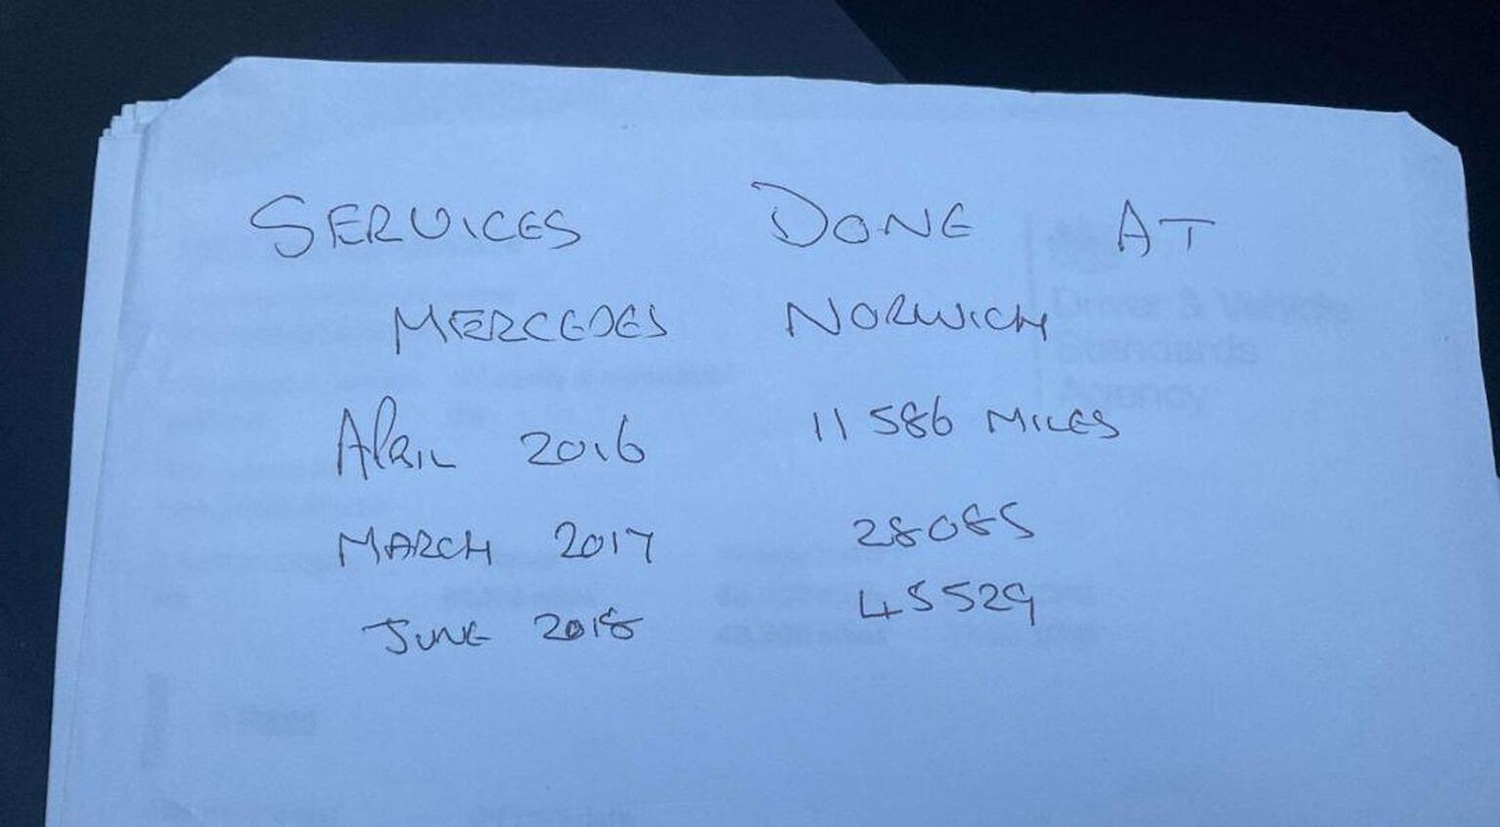 SERVICES DONE AT
MERCEDES NORWICH
APRIL 2016 11586 MILES
MARCH 2017 28085
JUNE 2018 45529
Driver & Vehicle
Standards
Agency